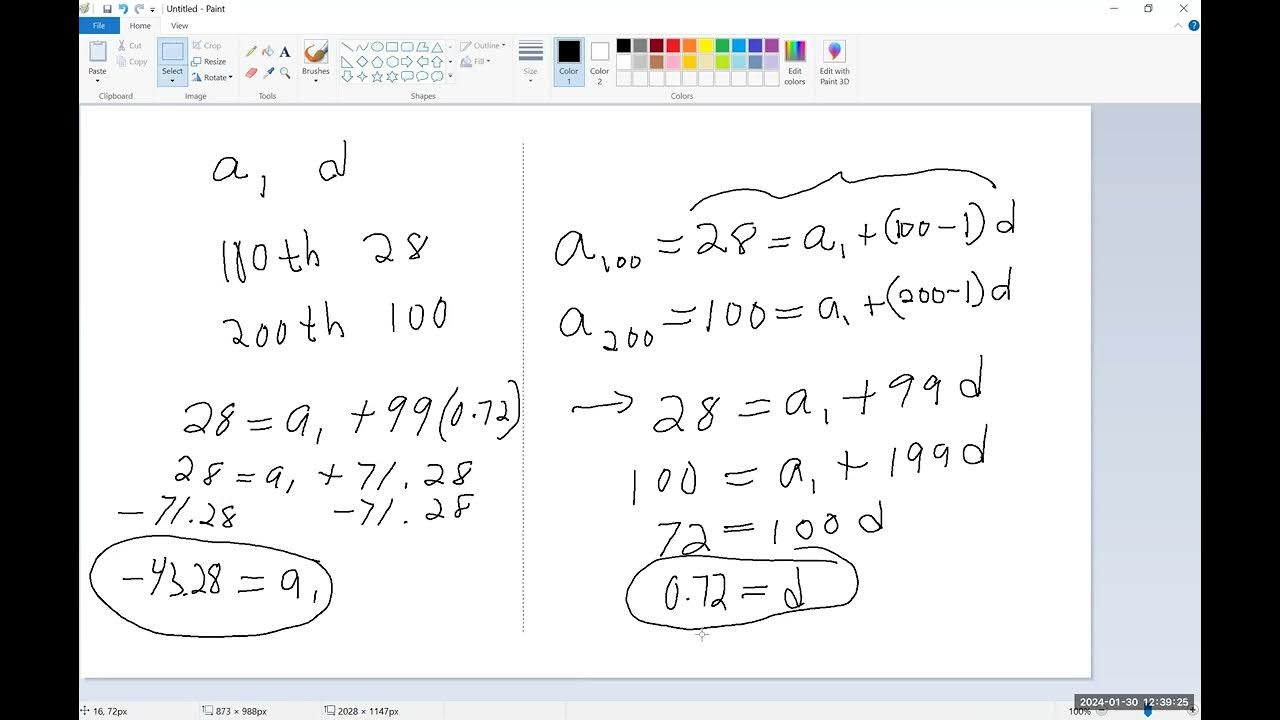 Untitled - Paint
File Home View
Paste Cut Copy Clipboard
Select Crop Resize Rotate Image
Tools
Brushes
Shapes Outline Fill
Size
Color 1 Color 2 Colors
Edit colors
Edit with Paint 3D
a₁ d
100th 28
200th 100
28 = a₁ + 99(0.72)
28 = a₁ + 71.28
-71.28 -71.28
-43.28 = a₁
a₁₀₀ = 28 = a₁ + (100-1)d
a₂₀₀ = 100 = a₁ + (200-1)d
→ 28 = a₁ + 99d
100 = a₁ + 199d
72 = 100d
0.72 = d
16, 72px 873 × 988px 2028 × 1147px 100%
2024-01-30 12:39:25